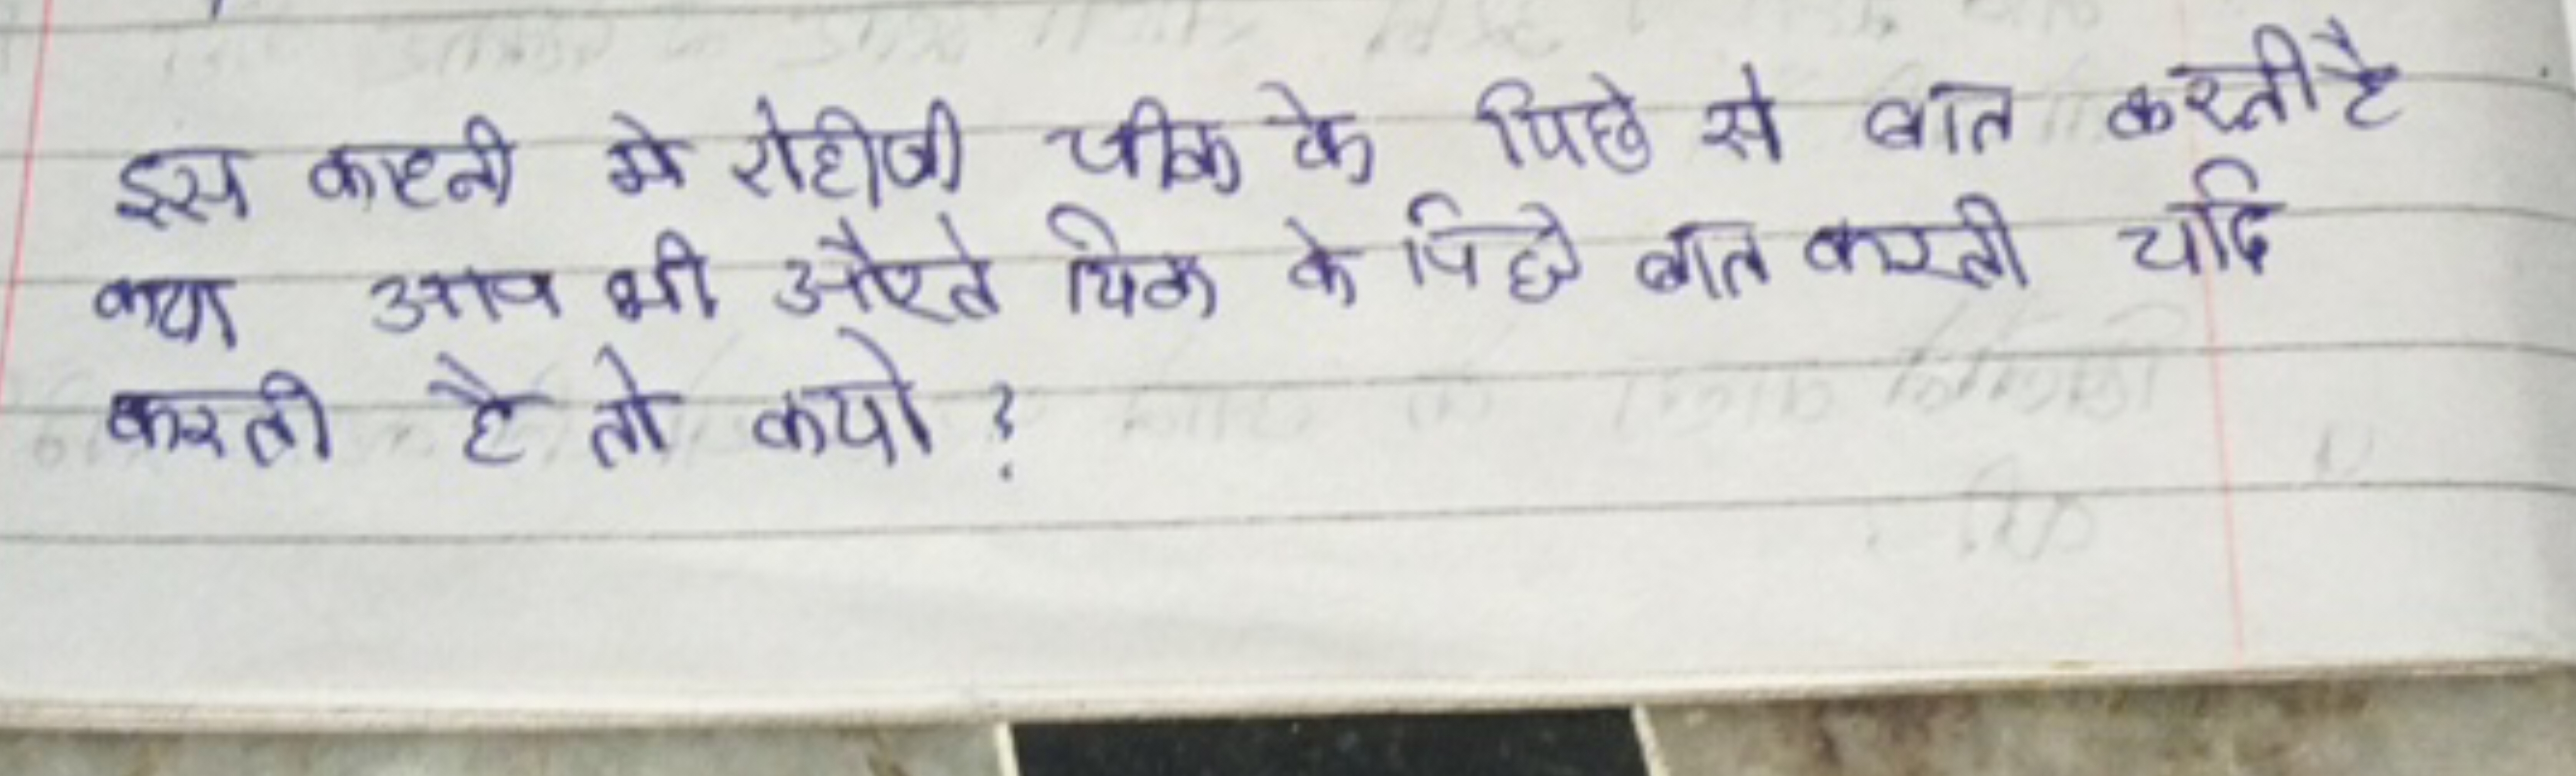 इस काहनी मे रोहीणी चीक के पिछे से बात करती है
क्या आप भी औरते चिक के पिछे बात करती यदि
करती है तो कयो ?